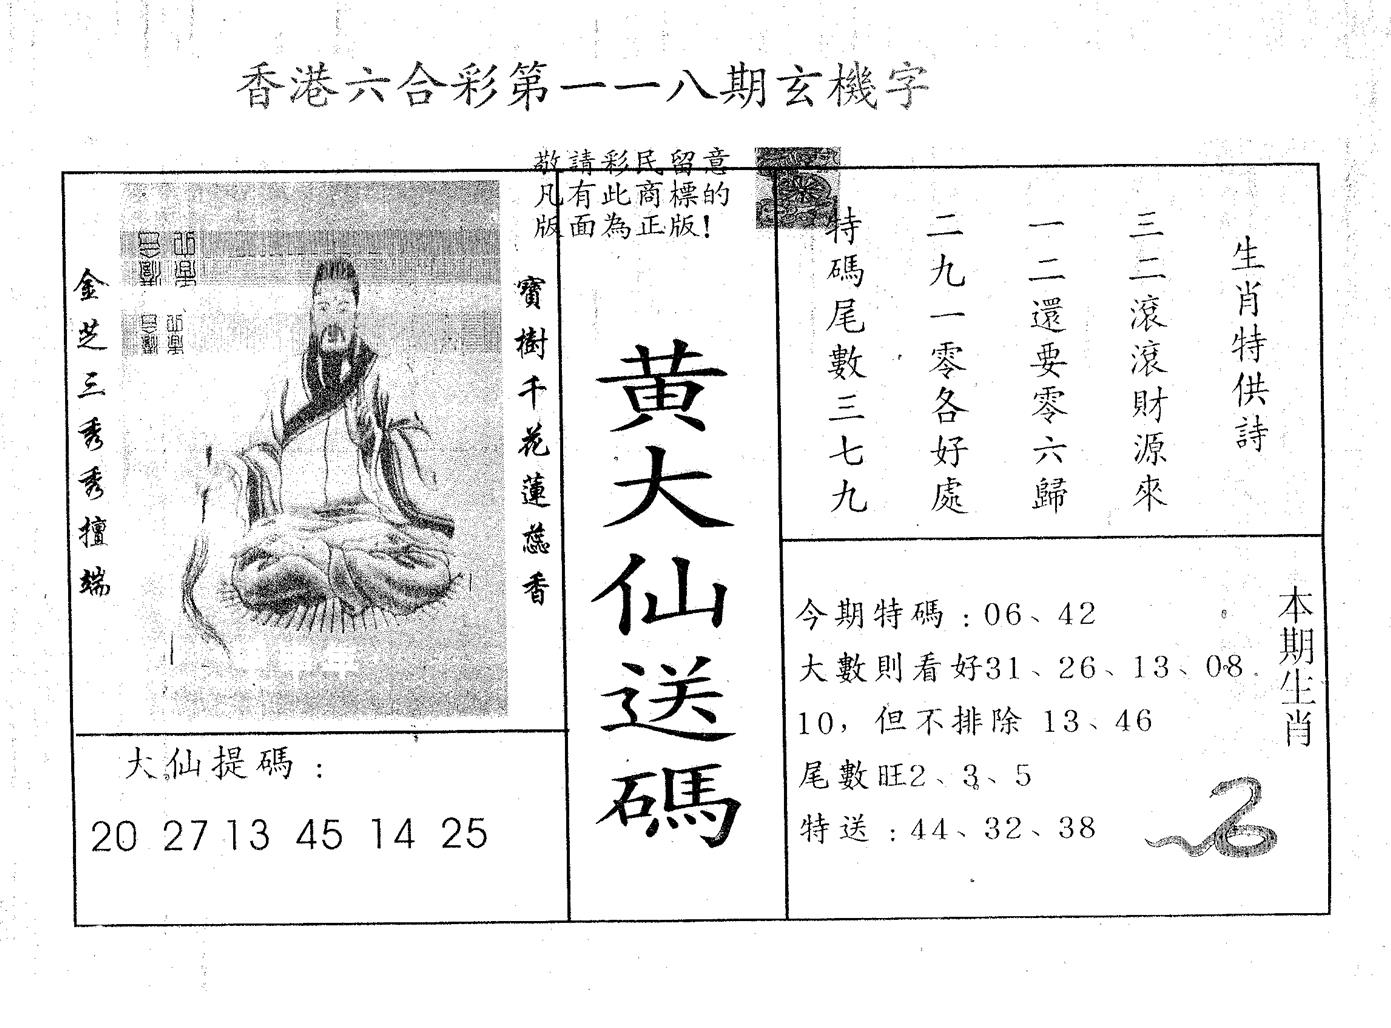 香港六合彩第一一八期玄機字
敬請彩民留意
凡有此商標的
版面為正版!
生肖特供詩
三二滾滾財源來
一二還要零六歸
二九一零各好處
特碼尾數三七九
寶樹千花蓮蕊香
金芝三秀秀擅端
黄大仙送碼
大仙提碼:
20 27 13 45 14 25
本期生肖
今期特碼:06、42
大數則看好31、26、13、08
10,但不排除 13、46
尾數旺2、3、5
特送:44、32、38